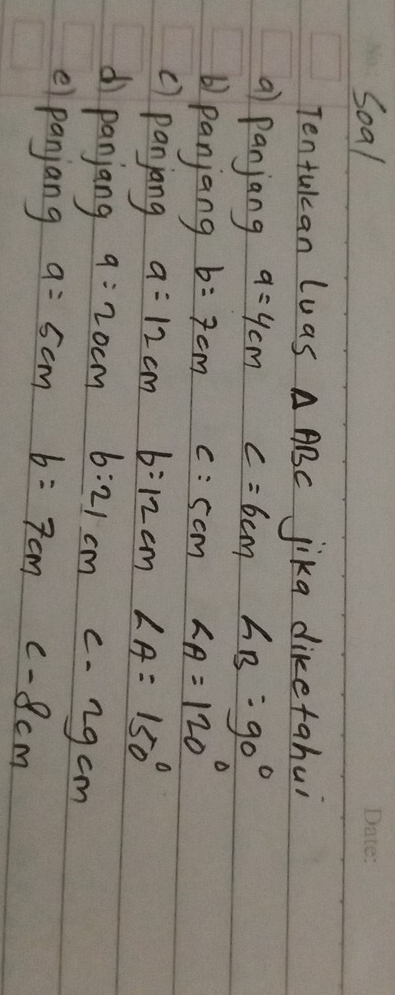 No:
Date:
Soal
Tentukan luas Δ ABC jika diketahui
a) Panjang a = 4cm c = 6cm ∠B = 90°
b) Panjang b = 7cm c = 5cm ∠A = 120°
c) panjang a = 12cm b = 12cm ∠A = 150°
d) panjang a = 20cm b = 21cm c - 29cm
e) panjang a = 5cm b = 7cm c - 8cm